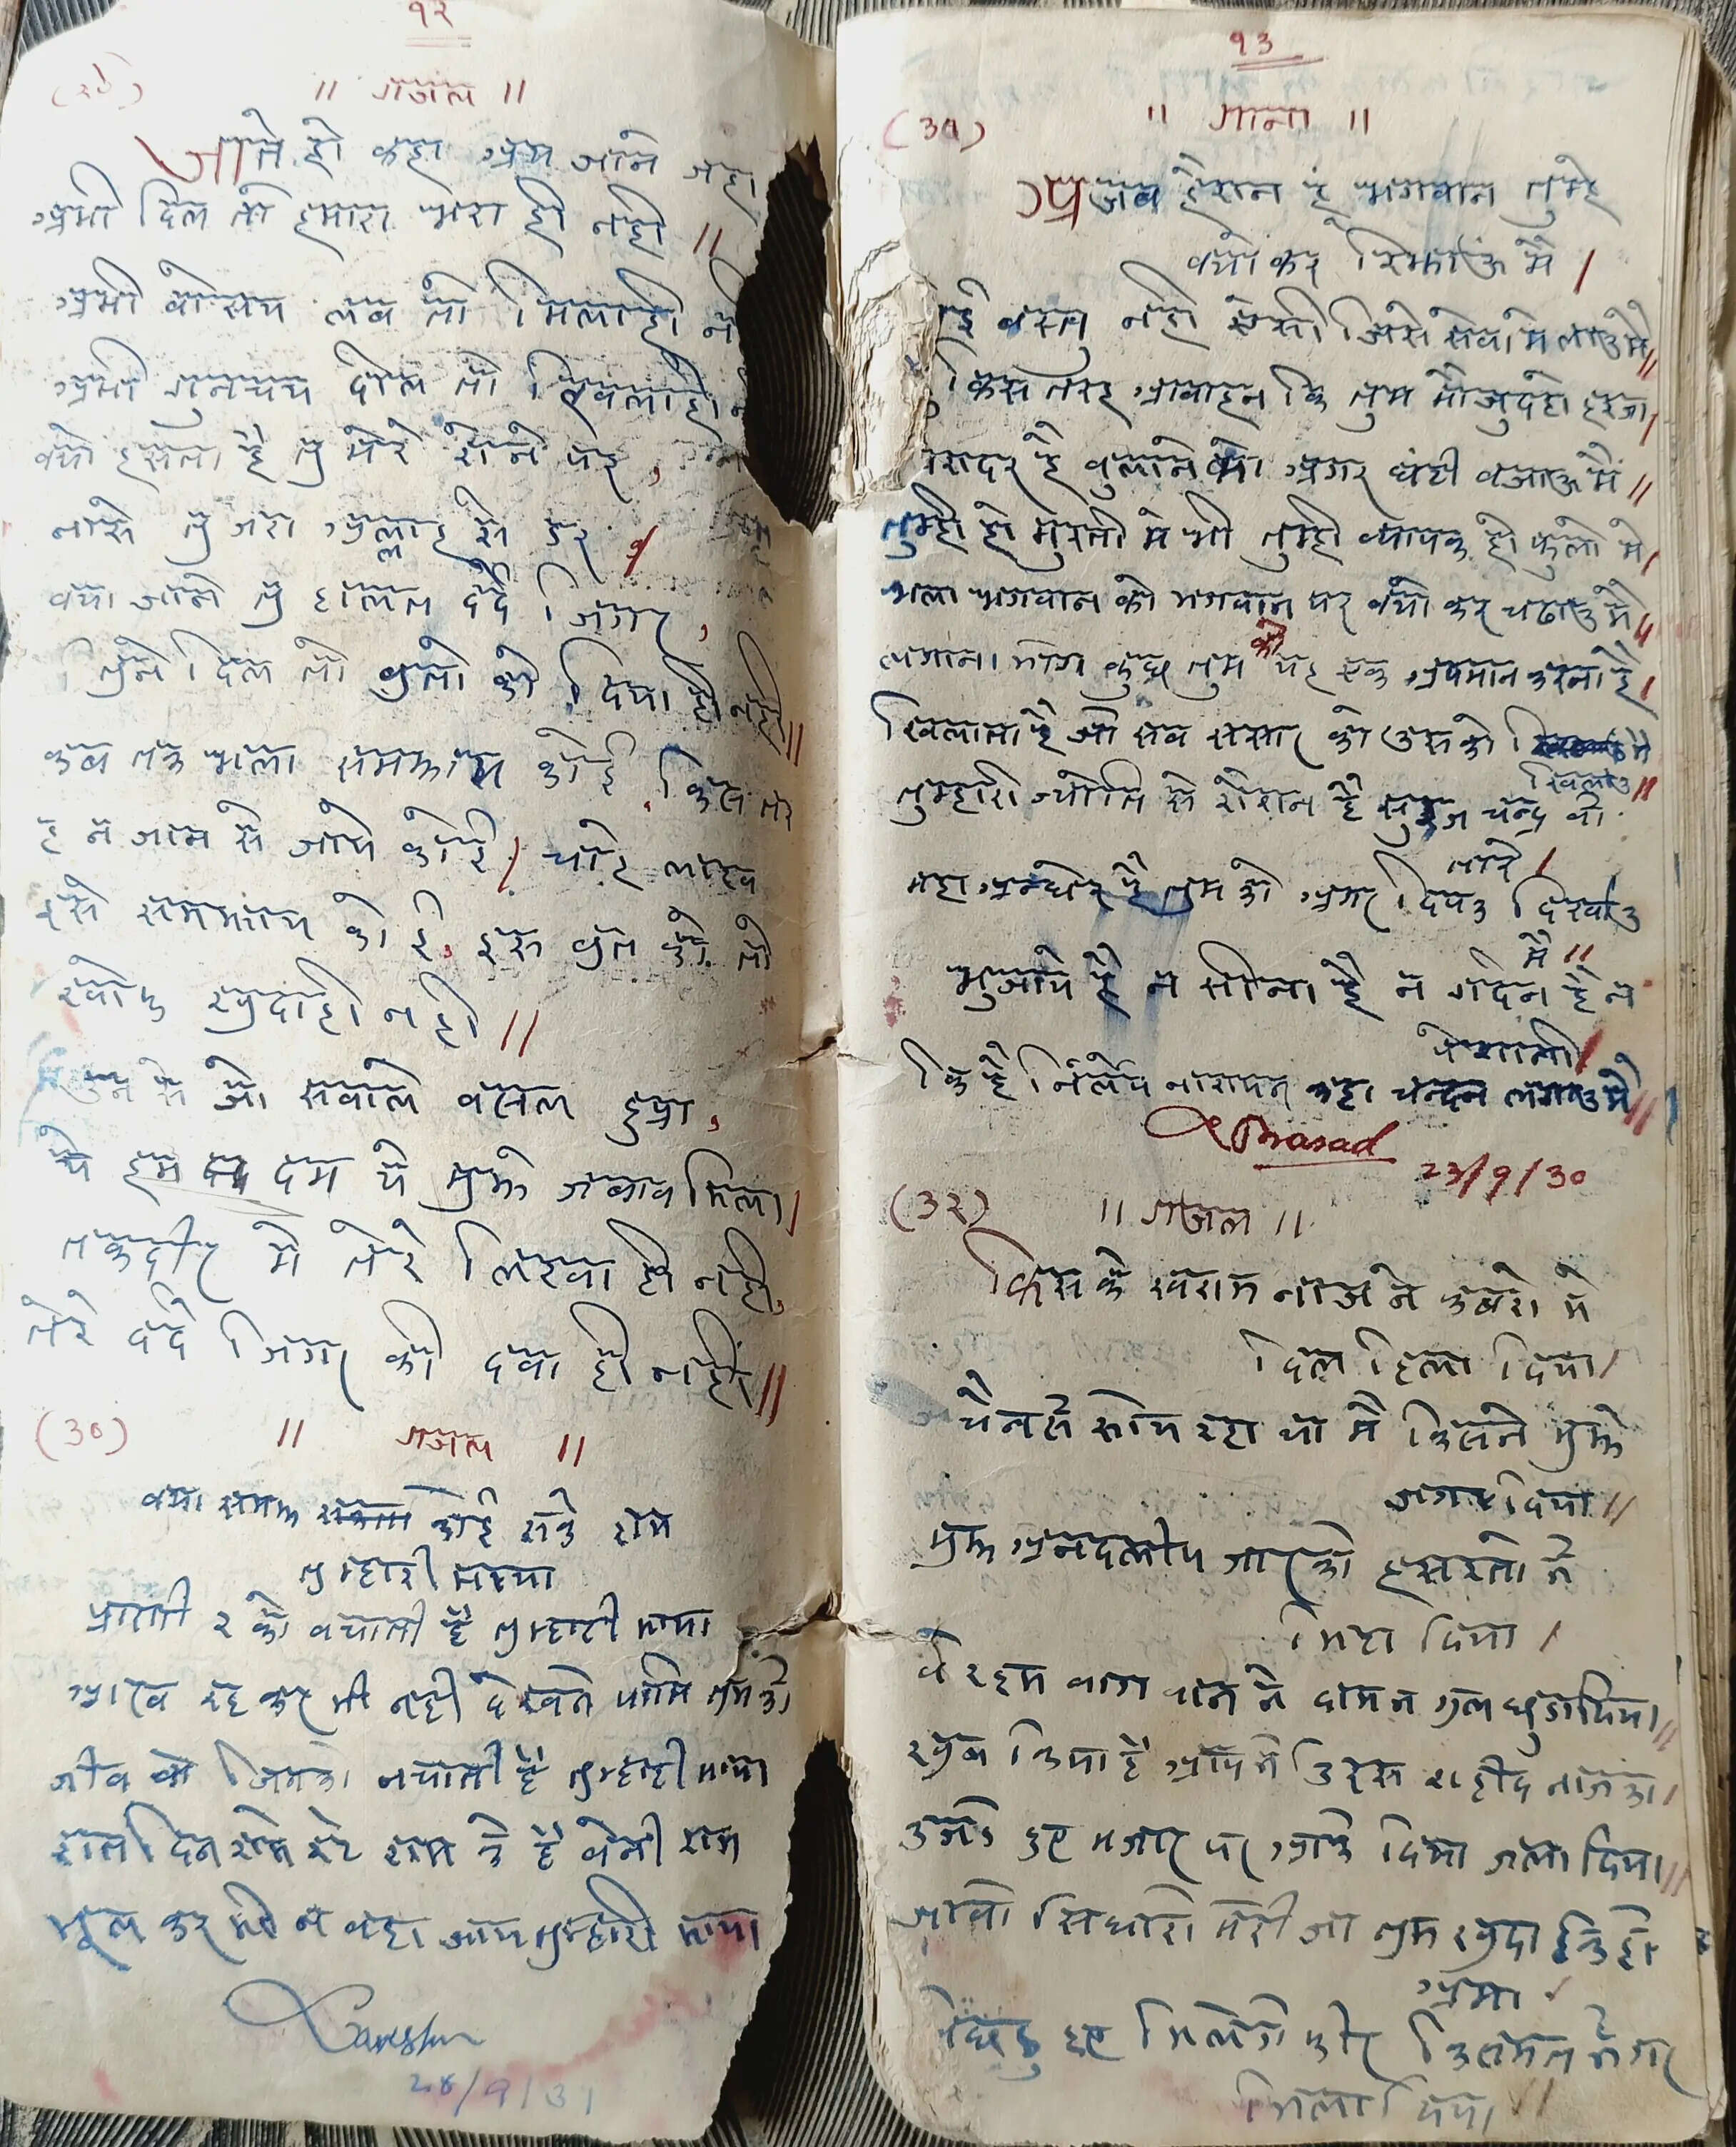 १२
(२९)
॥ गजल ॥
जाते हो कहा अभ जाने जहा
अभी दिल तो हमारा भरा ही नही ॥
अभी वोसय लब तो मिलाही
अभी गुनचय दील तो खिलाही
क्यो हसता है तु मेरे रोने पर,
तु जरा अल्लाह से डर /
क्या जाने तु हालत दर्दे जिगर,
तुने दिल तो बुतो को दिया ही नही ॥
कब तक भला समझाय कोई, किस तर
ह न जान से जाये कोई / चाहे लाख
इसे समझाय कोई, इस बुत को तो
खोफ खुदाही नही ॥
उनसे जो सवाले वसल हुआ,
ये हम दम ये मुझे जवाब मिला /
तकदीर मे तेरे लिखा ही नही,
तेरे दर्दे जिगर की दवा ही नही ॥
(३०) ॥ गजल ॥
क्या समझ सकता कोई राम
तुम्हारी माया
को बचाती है तुम्हारी माया
आख रह कर भी नही देखते तुमको
जीव को नचाती है तुम्हारी माया
रात दिन राम
भूल कर भी न वहा जाय तुम्हारी माया
२४/९/३१
१३
(३१) ॥ गाना ॥
अजब हैरान हूं भगवान तुम्हे
क्यो कर रिझाऊ मै /
वस्तु नही ऐसी जिसे सेवा मे लाउ मै ॥
किस तरह आवाहन कि तुम मौजुद हो हरजा /
निरादर है बुलाने को अगर घंटी बजाऊ मै ॥
तुम्ही हो मुरती मे भी तुम्ही व्यापक हो फुलो मे /
भला भगवान को भगवान पर क्यो कर चढाउ मै ॥
लगाना भोग कुछ तुम को यह एक अपमान करना है /
खिलाता है जो सब संसार को उसको
खिलाउ ॥
तुम्हारी ज्योति से रोशन है सुरज चन्द्र वो
तारे /
महा अन्धेर है तुम को अगर दिपक दिखाउ
मै ॥
भुजाये है न सीना है न गर्दन है न
पेशानी /
कि है निर्लेप नारायन कहा चन्दन लगाउ मै ॥
Prasad
23/9/30
(३२) ॥ गजल ॥
किस के खराम नाज ने कबरो मे
दिल हिला दिया /
चैन से सोय रहा था मै किसने मुझे
जगा दिया ॥
मुझ अनदलीप जार को हसरतो ने
मिटा दिया /
बे रहम बाग बान ने दामन गुल छुडा दिया ॥
खुब किया है आपने उरस शहीद नाज का /
उजडे हुए मजार पर आके दिया जला दिया ॥
जावो सिधारो मेरी जा तुम खुदा
बिछडे हुए मिलेगे फीर किसमत ने गर
मिला दिया